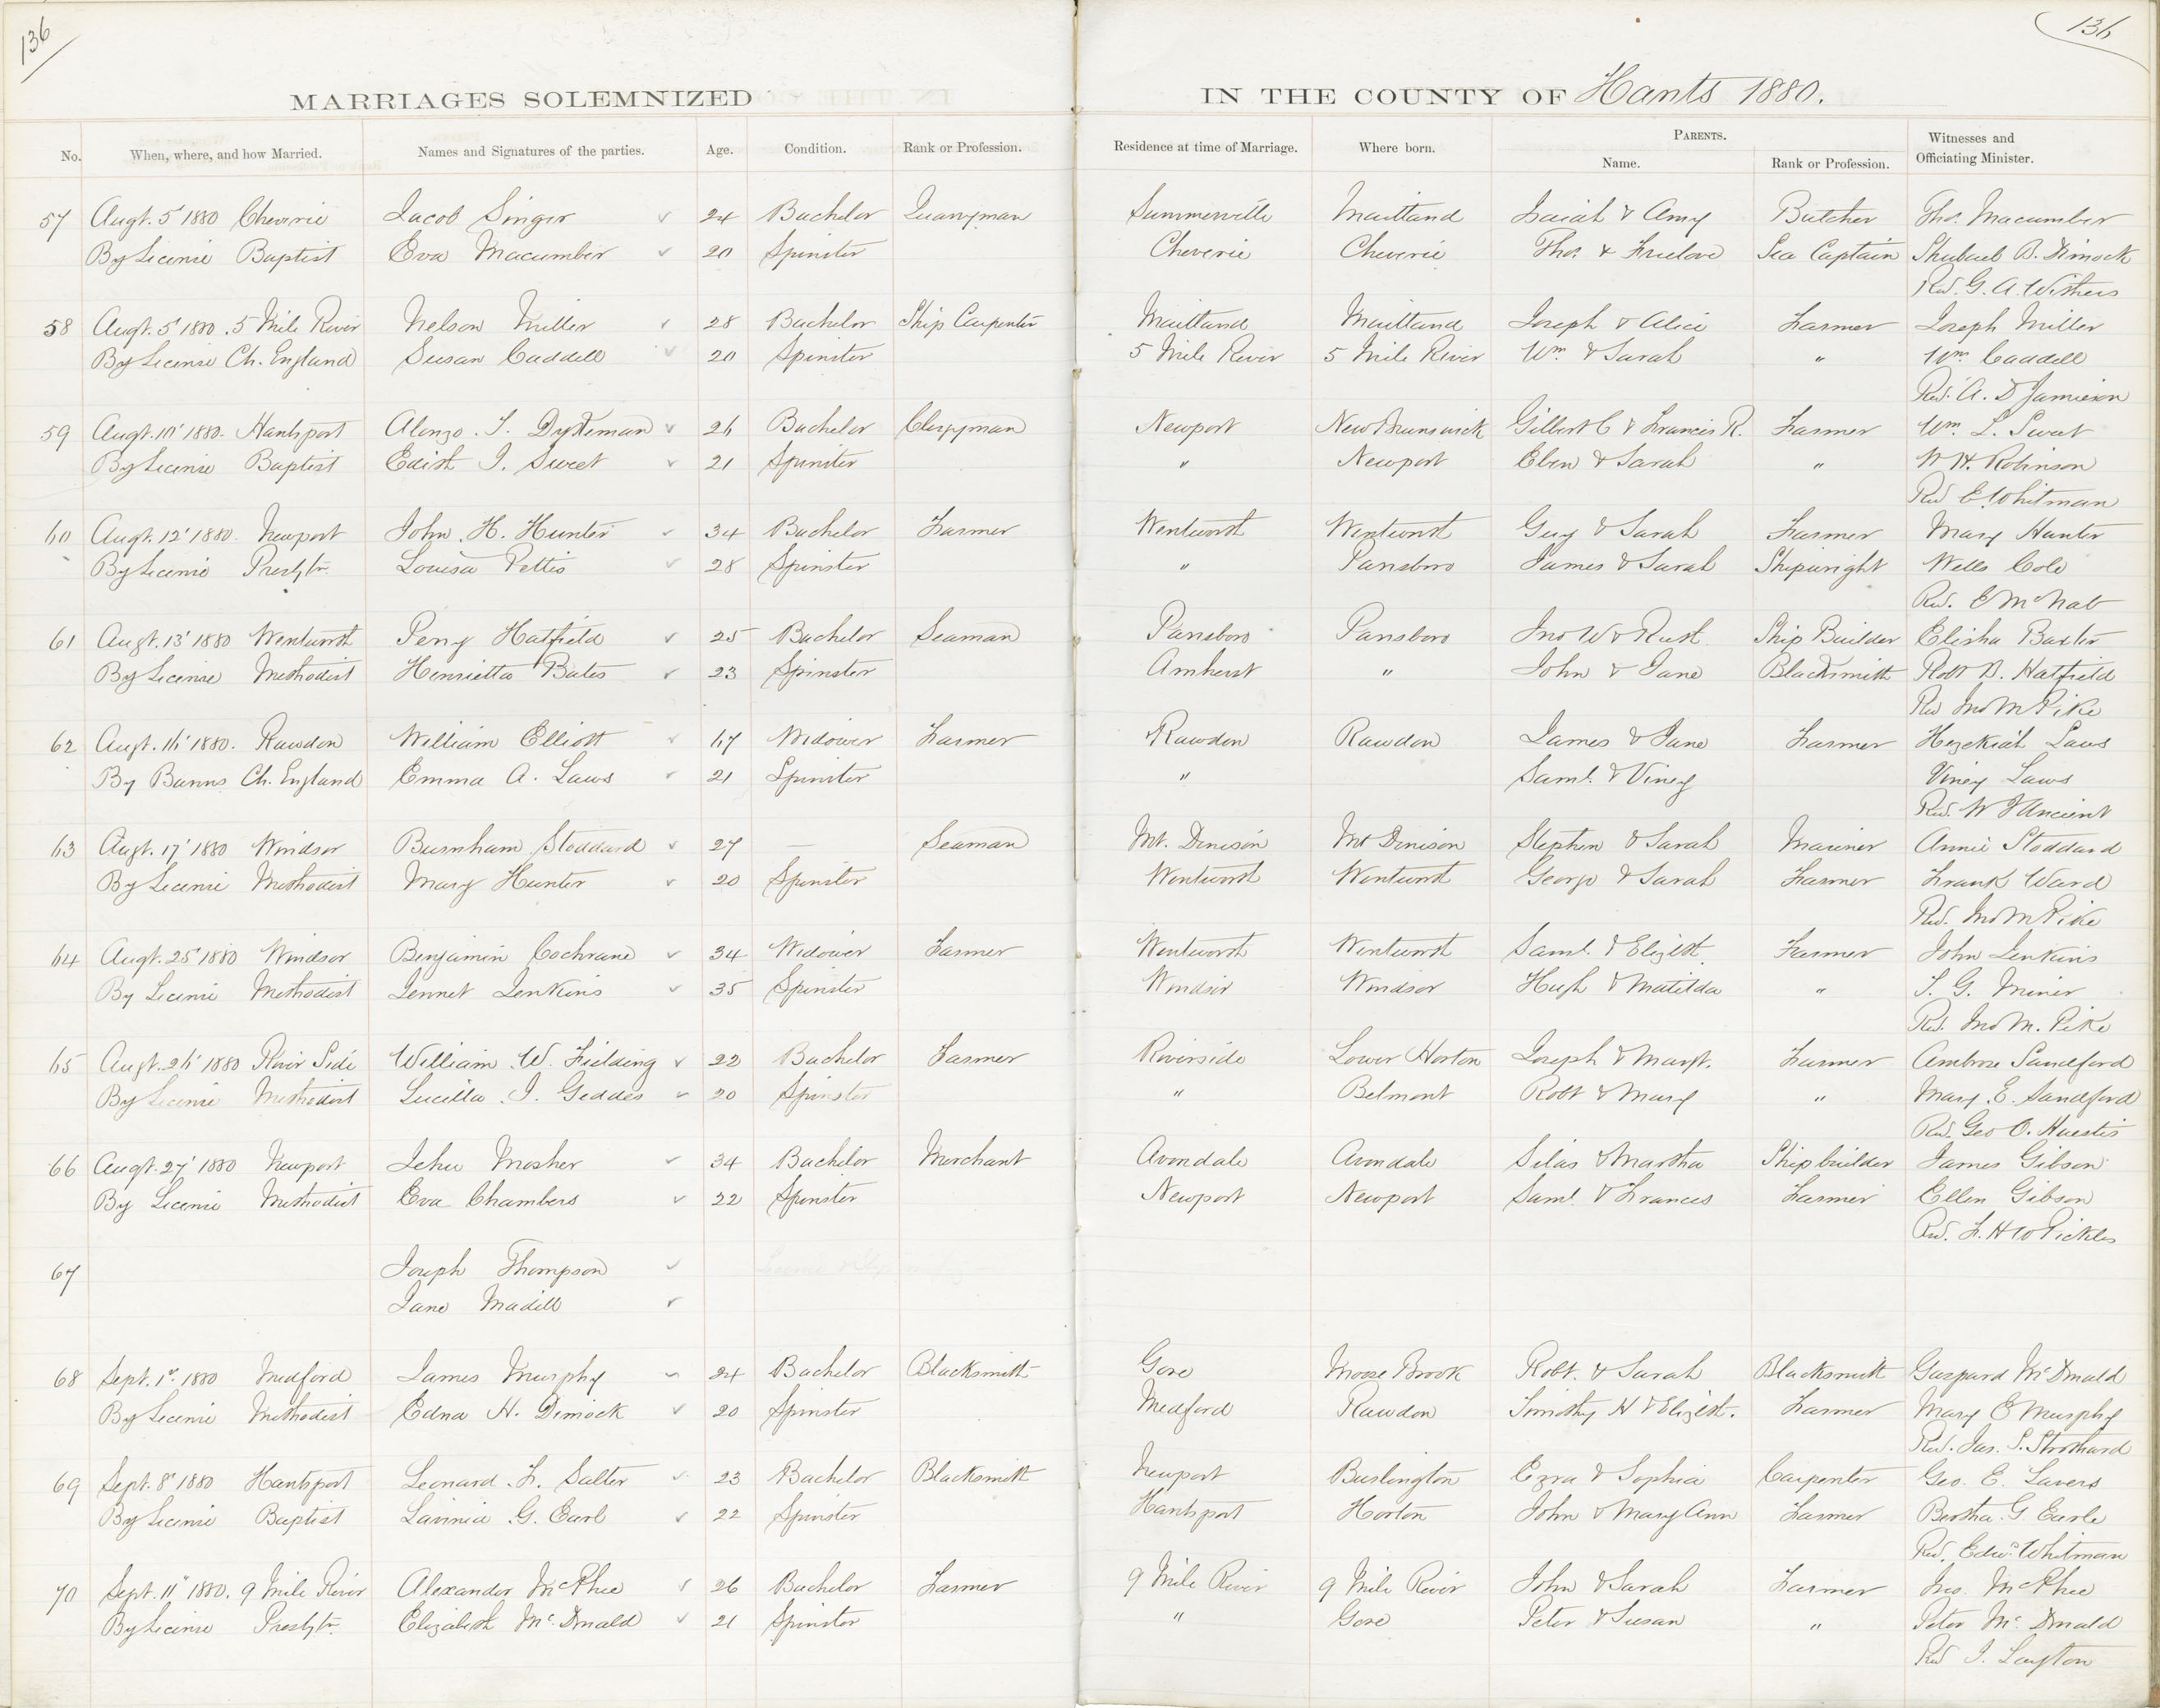 136
136
MARRIAGES SOLEMNIZED IN THE COUNTY OF Hants 1880.
No. When, where, and how Married. Names and Signatures of the parties. Age. Condition. Rank or Profession. Residence at time of Marriage. Where born. PARENTS. Name. Rank or Profession. Witnesses and Officiating Minister.
57 Augt. 5' 1880 Cheverie Jacob Singer 24 Bachelor Quarryman Summerville Maitland Isaiah & Amy Butcher Thos. Macumber
By License Baptist Eva Macumber 20 Spinster Cheverie Cheverie Thos. & Freelove Sea Captain Shubael B. Dimock
Rev. G. A. Withers
58 Augt. 5' 1880. 5 Mile River Nelson Miller 28 Bachelor Ship Carpenter Maitland Maitland Joseph & Alice Farmer Joseph Miller
By License Ch. England Susan Caddell 20 Spinster 5 Mile River 5 Mile River Wm. & Sarah " Wm. Caddell
Rev. A. D Jamieson
59 Augt. 10' 1880. Hantsport Alonzo. T. Dykeman 26 Bachelor Clergyman Newport New Brunswick Gilbert C & Francis R. Farmer Wm. L. Sweet
By License Baptist Edith I. Sweet 21 Spinster " Newport Eben & Sarah " W H. Robinson
Rev E Whitman
60 Augt. 12' 1880. Newport John. H. Hunter 34 Bachelor Farmer Wentworth Wentworth Guy & Sarah Farmer Mary Hunter
By License Presbytn. Louisa Pettis 28 Spinster " Parrsboro James & Sarah Shipwright Wells Cole
Rev. E McNab
61 Augt. 13' 1880 Wentworth Percy Hatfield 25 Bachelor Seaman Parrsboro Parrsboro Jno W & Ruth Ship Builder Elisha Baxter
By License Methodist Henrietta Bates 23 Spinster Amherst " John & Jane Blacksmith Robt B. Hatfield
Rev Jno M Pike
62 Augt. 16' 1880. Rawdon William Elliott 67 Widower Farmer Rawdon Rawdon James & Jane Farmer Hezekiah Laws
By Banns Ch. England Emma A. Laws 21 Spinster " Saml. & Viney Viney Laws
Rev. W J Ancient
63 Augt. 17' 1880 Windsor Burnham Stoddard 27 — Seaman Mt. Denison Mt Denison Stephen & Sarah Mariner Annie Stoddard
By License Methodist Mary Hunter 20 Spinster Wentworth Wentworth George & Sarah Farmer Frank Ward
Rev. Jno M Pike
64 Augt. 25' 1880 Windsor Benjamin Cochrane 34 Widower Farmer Wentworth Wentworth Saml. & Elizbth. Farmer John Jenkins
By License Methodist Jennet Jenkins 35 Spinster Windsor Windsor Hugh & Matilda " S. G. Miner
Rev. Jno M. Pike
65 Augt. 26' 1880 River Side William. W. Fielding 22 Bachelor Farmer Riverside Lower Horton Joseph & Margt. Farmer Ambrose Sandford
By License Methodist Lucilla. I. Geddes 20 Spinster " Belmont Robt & Mary " Mary. E. Sandford
Rev. Geo O. Huestis
66 Augt. 27' 1880 Newport Jehu Mosher 34 Bachelor Merchant Avondale Avondale Silas & Martha Shipbuilder James Gibson
By License Methodist Eva Chambers 22 Spinster Newport Newport Saml. & Frances Farmer Ellen Gibson
Rev. F. H W Pickles
67 Joseph Thompson
Jane Madill
68 Sept. 1st. 1880 Medford James Murphy 24 Bachelor Blacksmith Gore Moose Brook Robt. & Sarah Blacksmith Gaspard McDonald
By License Methodist Edna H. Dimock 20 Spinster Medford Rawdon Timothy H & Elizbth. Farmer Mary E Murphy
Rev. Jas. S. Strothard
69 Sept. 8' 1880 Hantsport Leonard. F. Salter 23 Bachelor Blacksmith Newport Burlington Ezra & Sophia Carpenter Geo. E. Lavers
By License Baptist Lavinia. G. Earl 22 Spinster Hantsport Horton John & Mary Ann Farmer Bertha. G Earle
Rev. Edwd. Whitman
70 Sept. 11" 1880. 9 Mile River Alexander McPhee 26 Bachelor Farmer 9 Mile River 9 Mile River John & Sarah Farmer Jno. McPhee
By License Presbytn. Elizabeth McDonald 21 Spinster " Gore Peter & Susan " Peter McDonald
Rev J. Layton